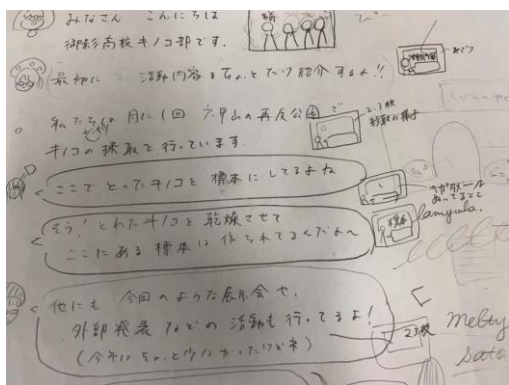 みなさん こんにちは
御影高校キノコ部です。
最初に 活動内容をちょっとだけ紹介するよ!!
私たちは月に1回 六甲山の再度公園で
キノコの採取を行っています。
2・3枚
採取の様子
ここでとったキノコを標本にしてるよね
そう!とれたキノコを乾燥させて
ここにある標本は作られてるんだよ〜
他にも 今回のような展示会や、
外部発表などの活動も行ってるよ!
(今年はちょっと少なかったけどネ)
2 3枚
Melty
Sato